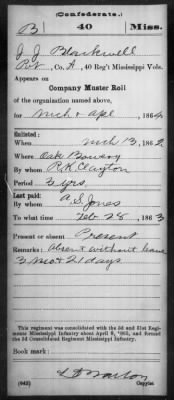 (Confederate.)
B 40 Miss.
J J Blackwell
Pvt, Co. A, 40 Reg't Mississippi Vols.
Appears on
Company Muster Roll
of the organization named above,
for Mch & Apl, 1864
Enlisted:
When Mch 13, 1862
Where Oak Bowery
By whom R. K. Clayton
Period 3 yrs.
Last paid:
By whom A. S. Jones
To what time Feb 28, 1863
Present or absent Present
Remarks: Absent without leave
3 mo & 21 days.
This regiment was consolidated with the 3d and 31st Regiments Mississippi Infantry about April 9, 1865, and formed the 3d Consolidated Regiment Mississippi Infantry.
Book mark:
(642) Copyist.